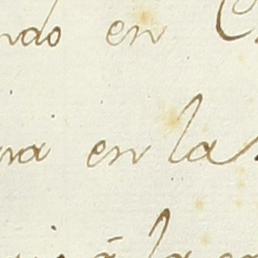 ndo en C
ra en la
á la